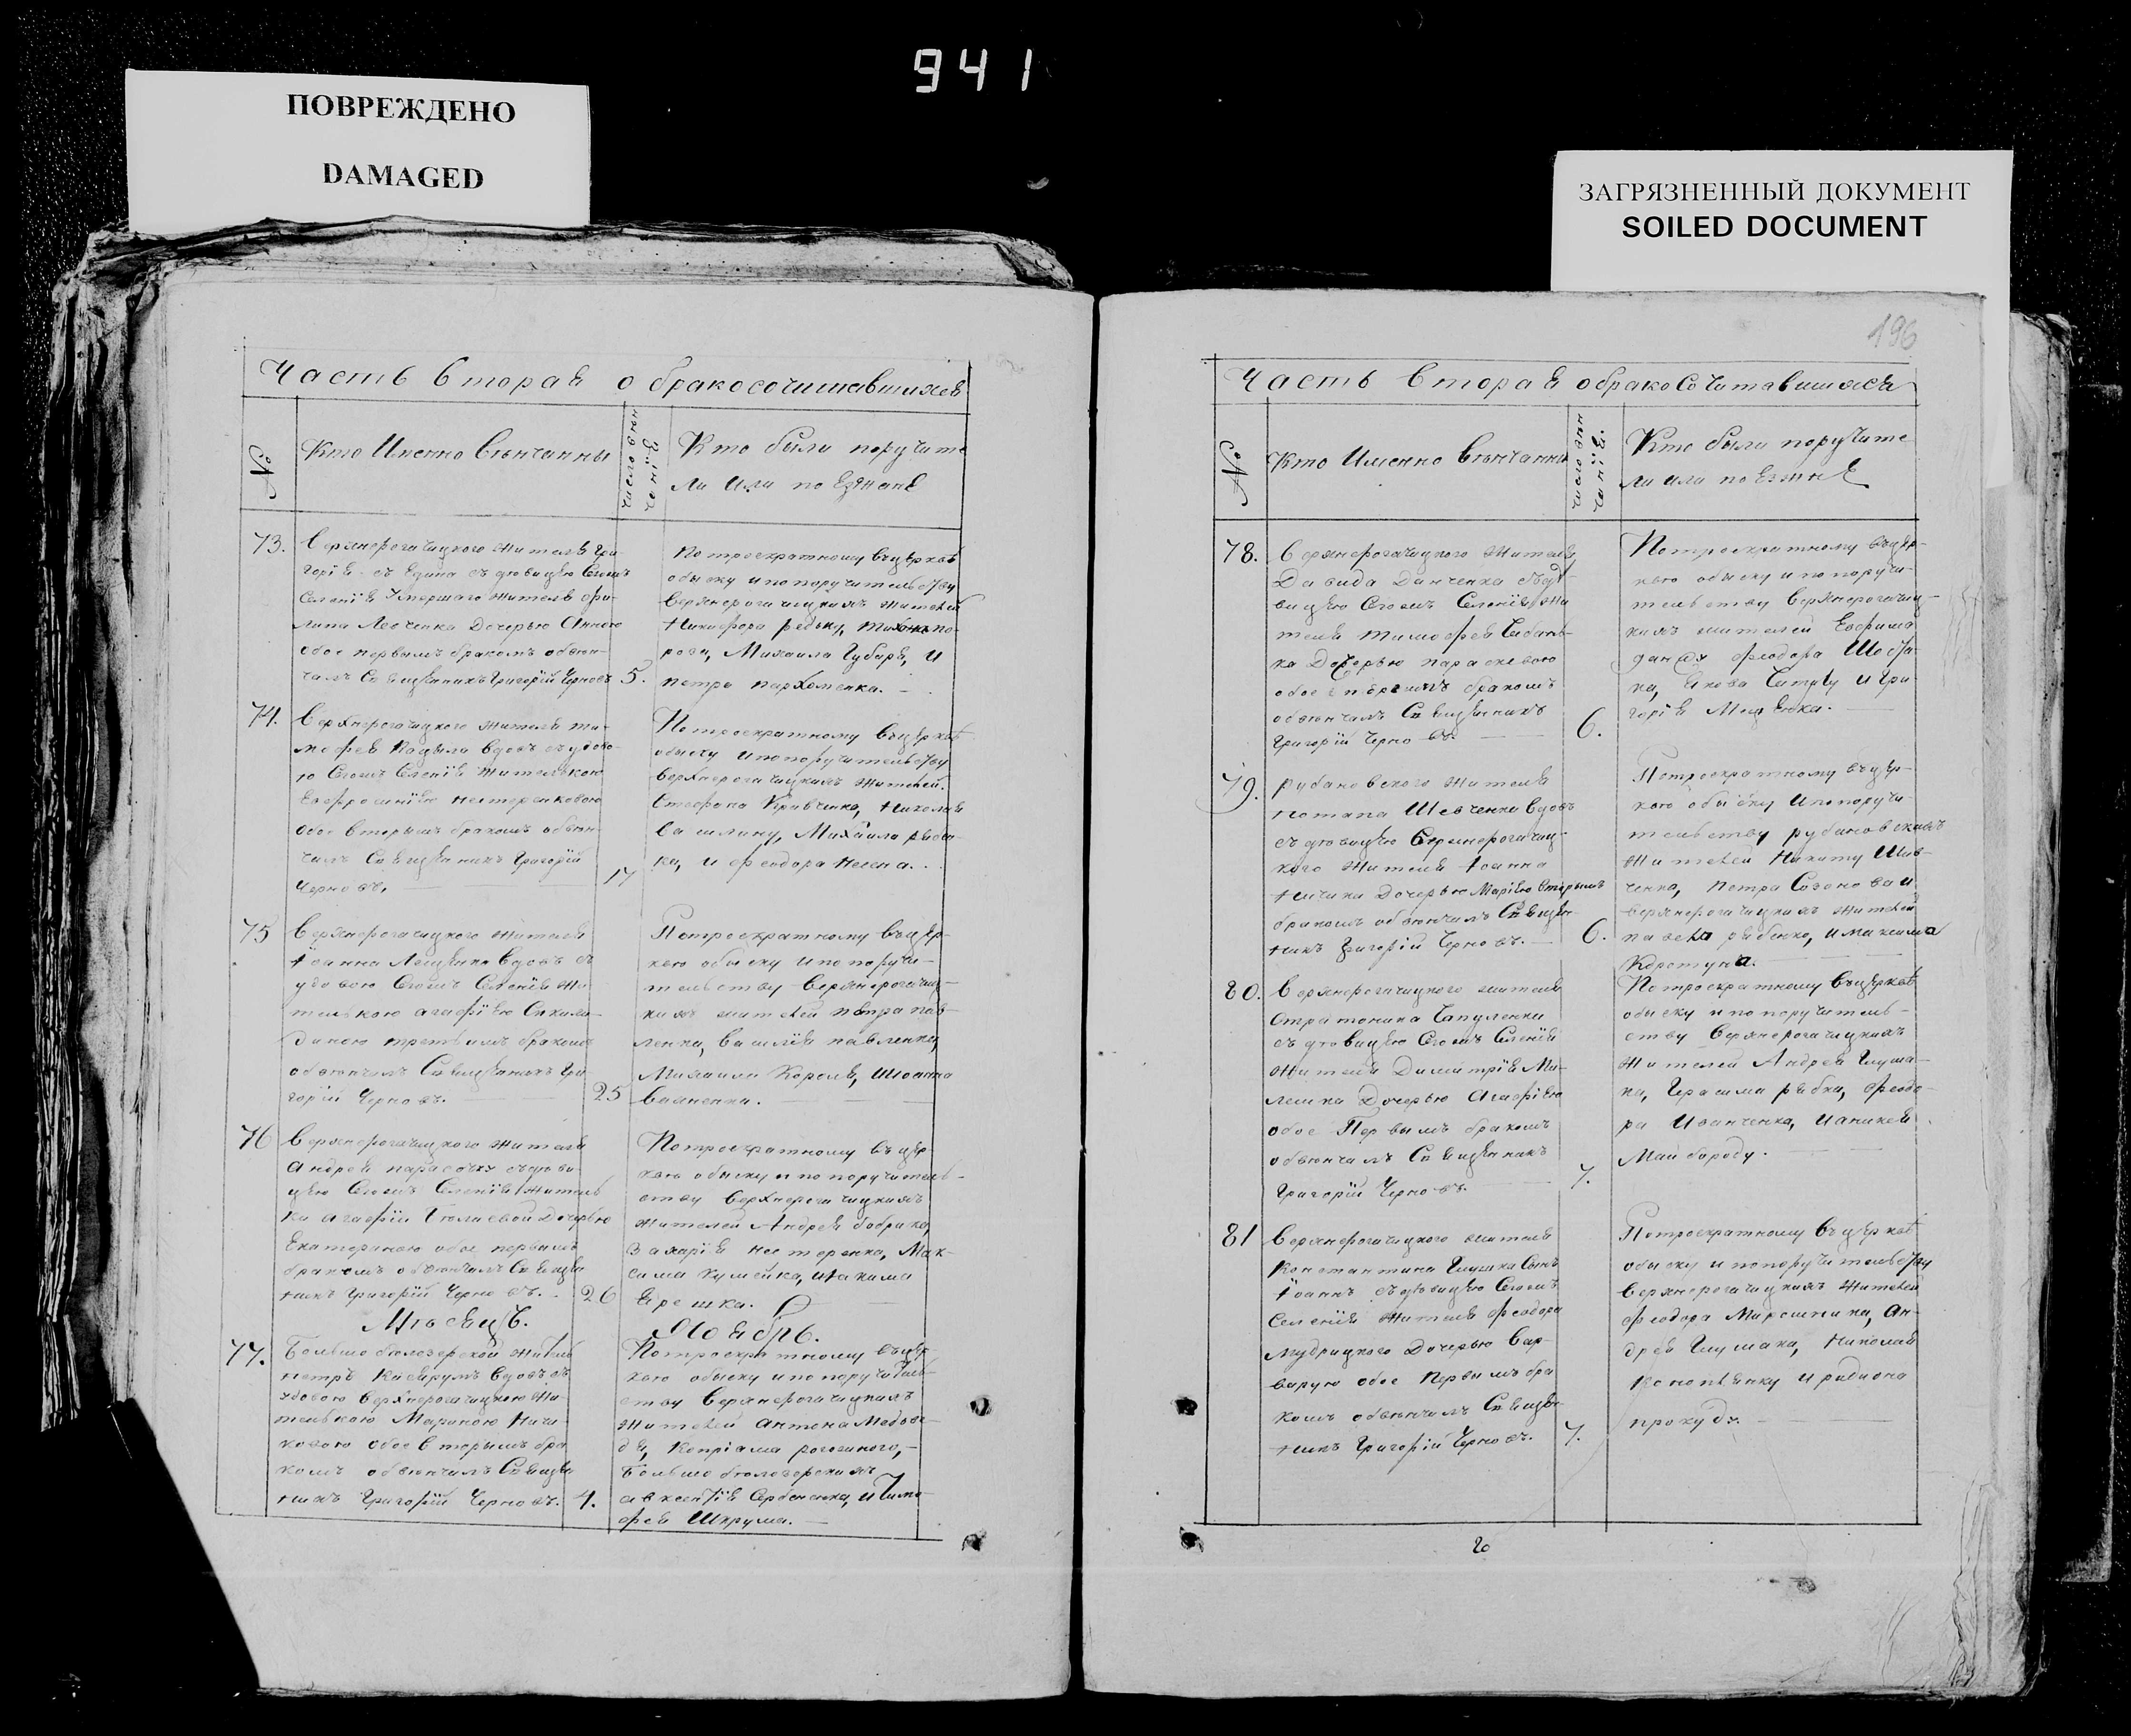 941
ПОВРЕЖДЕНО
DAMAGED
ЗАГРЯЗНЕННЫЙ ДОКУМЕНТ
SOILED DOCUMENT
Часть вторая о бракосочитавшихся
№
Кто Именно Вѣнчанны
число вѣн
чанїя
Кто были поручите
ли или поезжанѣ
73.
верхнерогачицкого жителя Гри-
горія съ девицею Сегожъ
Селенія Умершаго жителя Фи-
липа Левченка Дочерью Анною
обое первымъ бракомъ обвѣн-
чалъ Священникъ Григорїй Черновъ
5.
По троекратному въцеркве
обыску и по поручительству
верхнерогачицкихъ жителей
Никифора редьку,
Михаила Губаря, и
петра пархоменка.
74.
Верхнерогачицкого жителя ти-
мофея вдовъ съ вдово-
ю Сегожъ Селенія жителькою
Евфросинїею нестеренковою
обое вторымъ бракомъ обвѣн-
чалъ Священникъ Григорїй
Черновъ.
17
По троекратному въцеркве
обыску и по поручительству
верхнерогачицкихъ жителей.
Стефана Кривченка, Николая
Михаила рябо-
ка, и феодора
75
Верхнерогачицкого жителя
Іоанна Лященка вдовъ съ
удовою Сегожъ Селенїя жи-
телькою агафїею
третьимъ бракомъ
обвѣнчалъ Священникъ Гри-
горїй Черновъ.
25
По троекратному въцер-
кве обыску и по поручи-
тельству Верхнерогачиц-
кихъ жителей петра пав-
ленка, Василїя павленка,
Михаила Короля, Иоанна
76
Верхнерогачицкого жителя
Андрея съдеви-
цею Сегожъ Селенїя житель
ки агафїи Дочерью
Екатериною обое первымъ
бракомъ обвѣнчалъ Священ
никъ Григорїй Черновъ.
26
По троекратному въцер
кве обыску и по поручитель-
ству Верхнерогачицкихъ
жителей Андрея бобрика,
Захарїя нестеренка, Мак-
сима
Ярешка.
Мѣсяцъ.
Ноябрь.
77.
Большобелозерской житель
петръ вдовъ съ
удовою верхнерогачицкою жи-
телькою Мариною Ничи-
ковою обое вторымъ бра
комъ обвѣнчалъ Священ
никъ Григорїй Черновъ.
4.
По троекратному въцер
кве обыску и по поручитель-
ству верхнерогачицкихъ
жителей антона Медве-
дя, Кипріяна рогозиного,
Большобелозерскихъ
авксентїя Сербененка, и Тимо
фея Шкрума.
196
Часть вторая обракосочитавшихся
№
Кто Именно вѣнчанны
число вѣн
чанїя.
Кто были поручите
ли или поезжанѣ
78.
верхнерогачицкого жителя
Давида Данченка съде-
вицею Сегожъ Селенїя жи
теля тимофея
ка Дочерью параскевою
обое первымъ бракомъ
обвѣнчалъ Священникъ
Григорїй Черновъ.
6.
По троекратному въцер-
кве обыску и по поручи-
тельству верхнерогачиц-
кихъ жителей Евфима
феодора
ка, Якова и Гри-
горїя
79.
рубановского жителя
потапа Шевченка вдовъ
съ девицею верхнерогачиц-
кого жителя Іоанна
Дочерью Марїею вторымъ
бракомъ обвѣнчалъ Священ
никъ Григорїй Черновъ.
6.
По троекратному въцер-
кве обыску и по поручи-
тельству рубановскихъ
жителей Никиту Шев-
ченка, петра Созонова и
верхнерогачицкихъ жителей
павла рябенко, и максима
Коротуна.
80.
Верхнерогачицкого жителя
Стратоника Чапуленка
съ девицею Сегожъ Селенїя
жителя Димитрїя Ми-
лешка Дочерью Агафїею
обое Первымъ бракомъ
обвѣнчалъ Священникъ
Григорїй Черновъ.
7.
По троекратному въцеркве
обыску и по поручитель-
ству Верхнерогачицкихъ
жителей Андрея Глуша-
ка, Герасима рябка, Феодо-
ра Иванченка, Ианикея
Майбороду.
81
Верхнерогачицкого жителя
Константина Глушка Сынъ
Іоаннъ съ девицею Сегожъ
Селенїя жителя Феодора
Мудрицкого Дочерью вар-
варую обое Первымъ бра
комъ обвѣнчалъ Священ
никъ Григорїй Черновъ.
7.
По троекратному въцеркве
обыску и по поручительству
верхнерогачицкихъ жителей
феодора Мирошника, Ан-
дрея Глушака, Николая
Конопленку и радиона
прокуду.